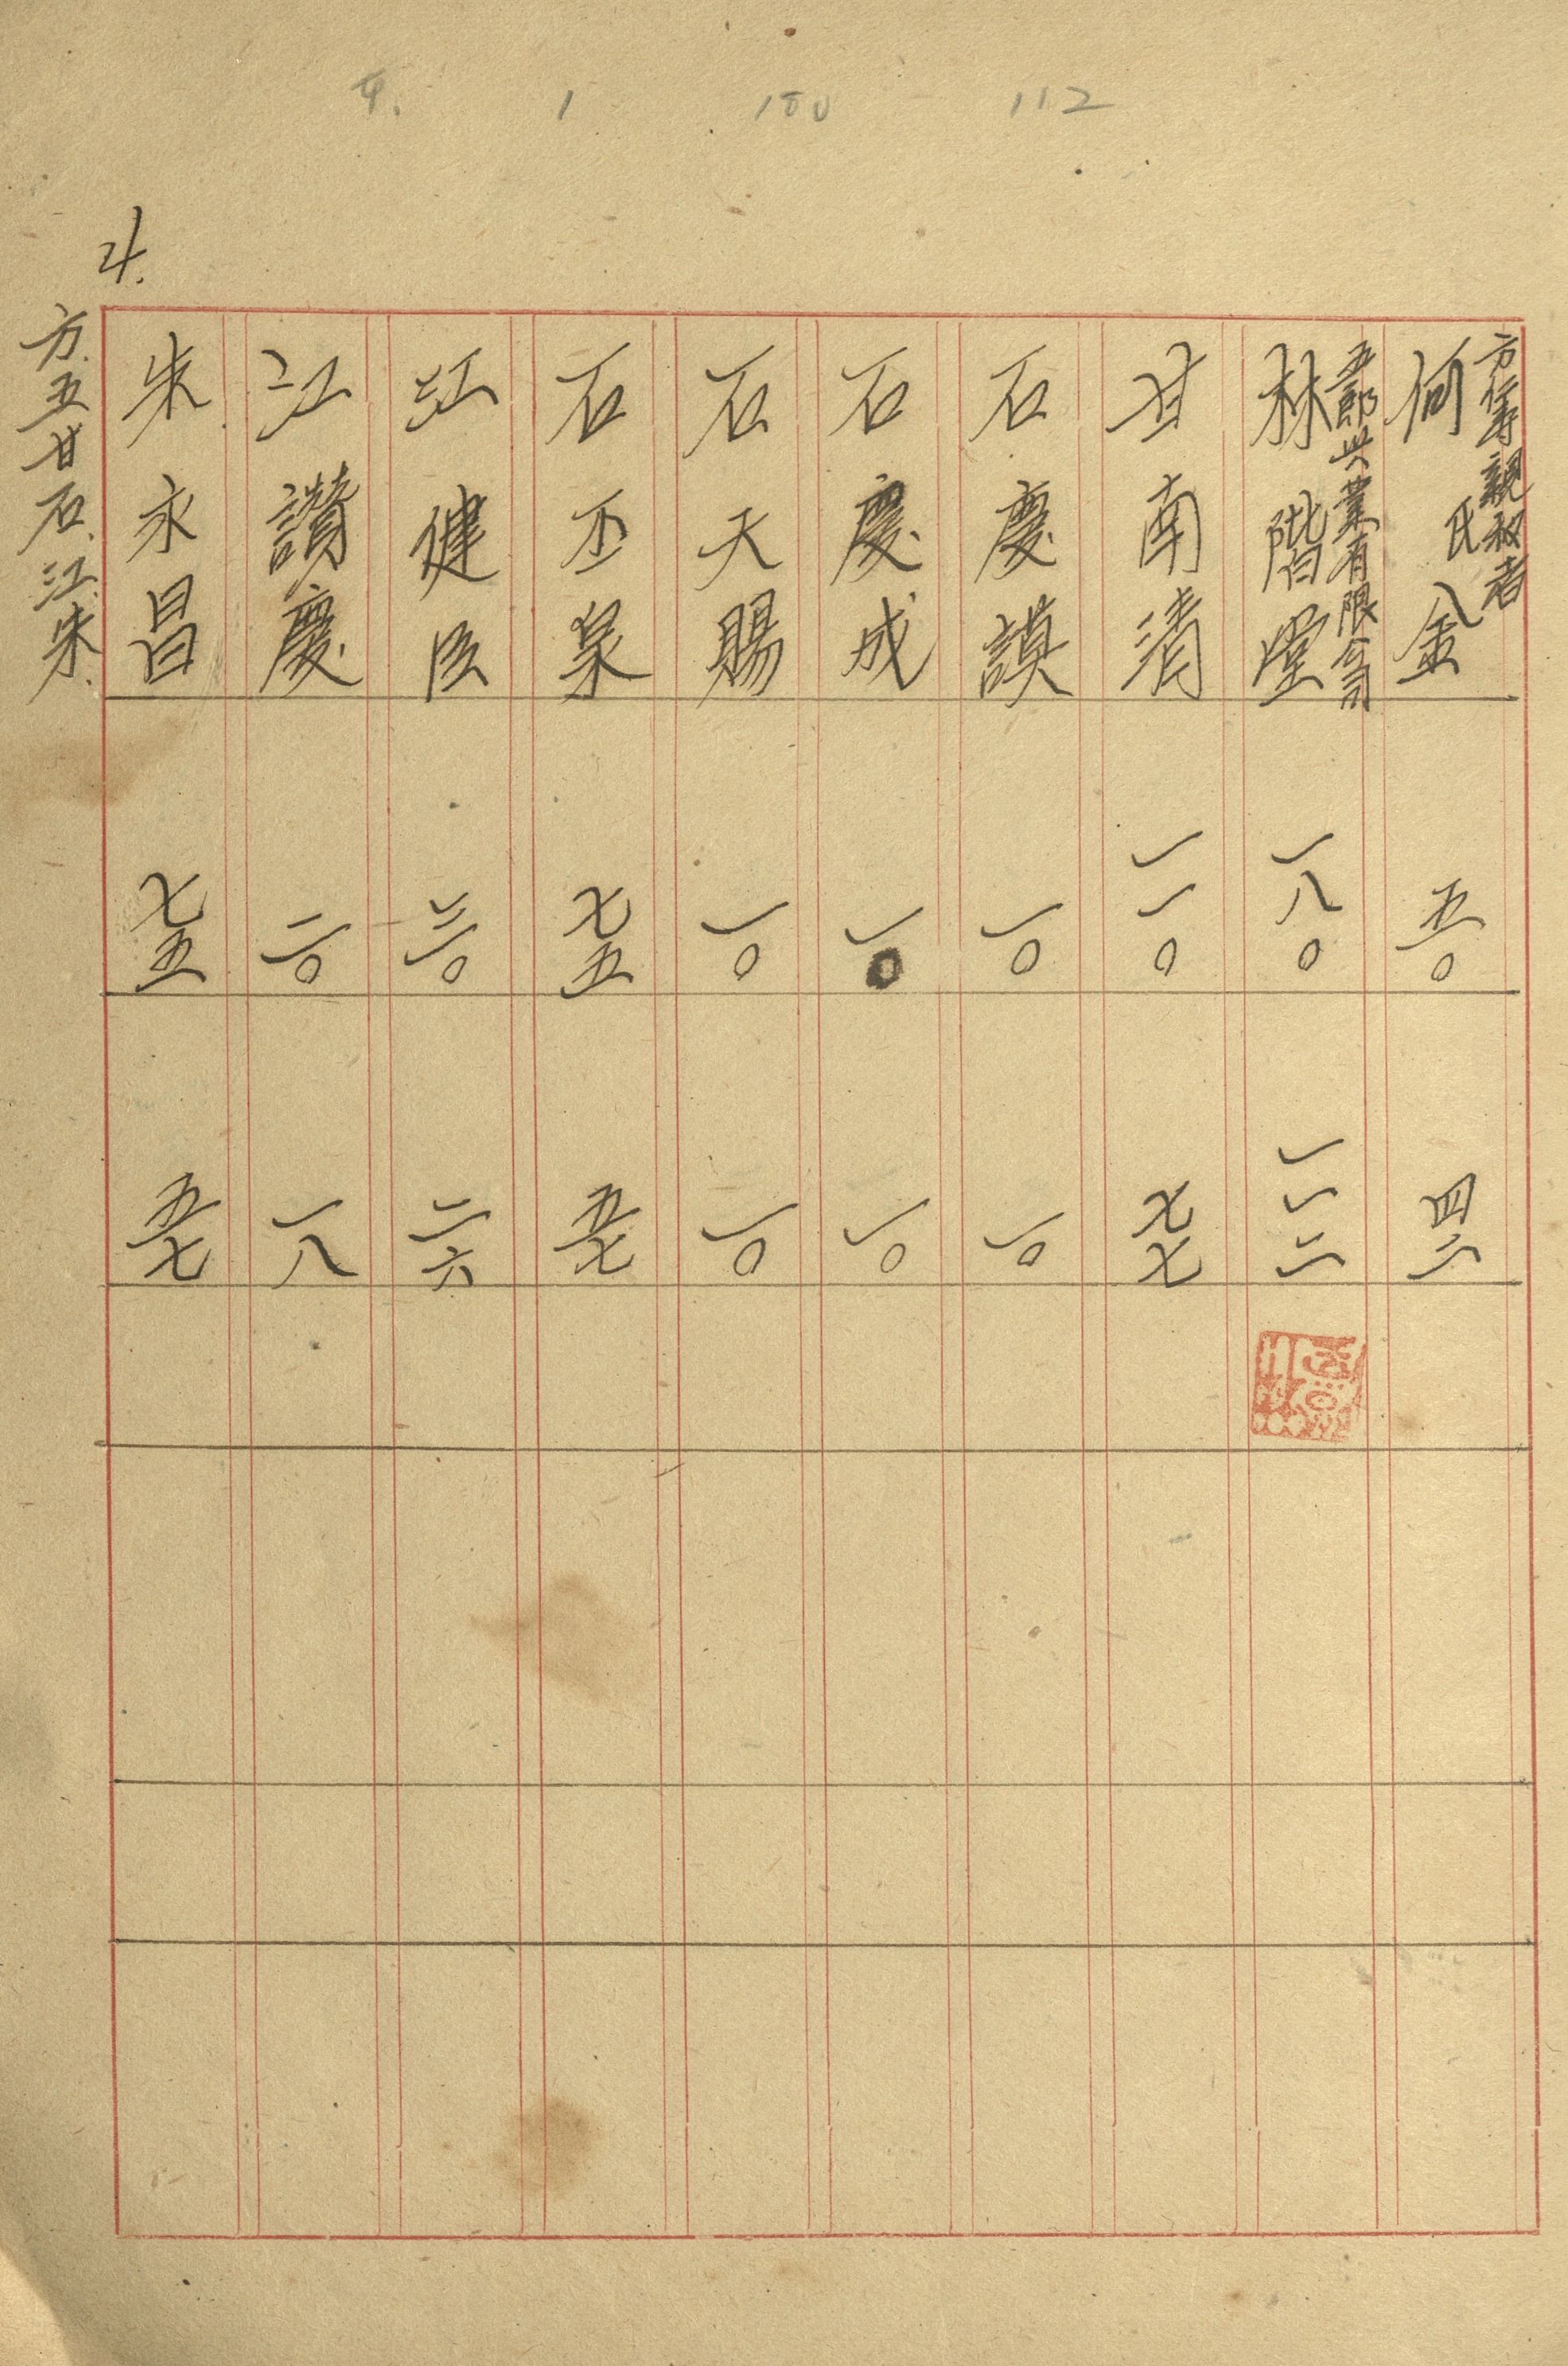 4. 1 180 112
4.
方皋親权者
何氏金
五〇
四二
五郎兴業有限公司
林階堂
一八〇
一一二
甘南清
一一〇
七七
石慶謨
一〇
一〇
石慶成
一〇
一〇
石天賜
一〇
一〇
石丕泉
七五
五七
江健臣
三〇
二六
江讚慶
二〇
一八
朱永昌
七五
五七
方.五甘石.江.朱.